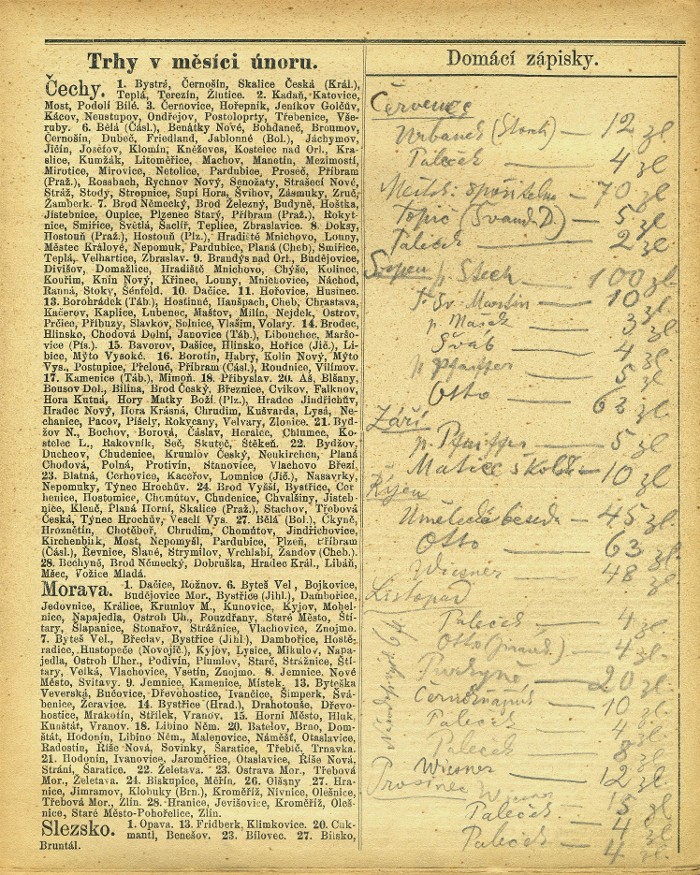 Trhy v měsíci únoru.
Čechy. 1. Bystrá, Černošín, Skalice Česká (Král.),
Teplá, Terezín, Žlutice. 2. Kadaň, Katovice,
Most, Podolí Bílé. 3. Černovice, Hořepník, Jeníkov Golčův,
Kácov, Neustupov, Ondřejov, Postoloprty, Třebenice, Vše-
ruby. 6. Bělá (Čásl.), Benátky Nové, Bohdaneč, Broumov,
Černošín, Dubeč, Friedland, Jablonné (Bol.), Jáchymov,
Jičín, Josefov, Klomín, Kněževes, Kostelec nad Orl., Kra-
slice, Kumžák, Litoměřice, Machov, Manetín, Mezimostí,
Mirotice, Mirovice, Netolice, Pardubice, Proseč, Příbram
(Praž.), Rosbach, Rychnov Nový, Senožaty, Strašecí Nové,
Stráž, Stody, Stropnice, Supí Hora, Švihov, Zásmuky, Zruč,
Žamberk. 7. Brod Německý, Brod Železný, Budyně, Hoštka,
Jistebnice, Oupice, Plzenec Starý, Příbram (Praž.), Rokyt-
nice, Smiřice, Světlá, Šaclíř, Teplice, Zbraslavice. 8. Doksy,
Hostouň (Praž.), Hostouň (Plz.), Hradiště Mnichovo, Louny,
Městec Králové, Nepomuk, Pardubice, Planá (Cheb), Smiřice,
Teplá, Velhartice, Zbraslav. 9. Brandýs nad Orl., Budějovice,
Divišov, Domažlice, Hradiště Mnichovo, Chýše, Kolinec,
Kouřim, Knín Nový, Křinec, Louny, Mnichovice, Náchod,
Ranná, Stoky, Šénfeld. 10. Dačice. 11. Hořovice, Husinec.
13. Borohrádek (Táb.), Hostinné, Haušpach, Cheb, Chrastava,
Kačerov, Kaplice, Lubenec, Maštov, Milín, Nejdek, Ostrov,
Prčice, Příbuzy, Slavkov, Solnice, Vlašim, Volary. 14. Brodec,
Hlinsko, Chodová Dolní, Janovice (Táb.), Libouchec, Maršo-
vice (Pís.). 15. Bavorov, Dašice, Hlinsko, Hořice (Jič.), Li-
bice, Mýto Vysoké. 16. Borotín, Habry, Kolín Nový, Mýto
Vys., Postupice, Přelouč, Příbram (Čásl.), Roudnice, Vilímov.
17. Kamenice (Táb.), Mimoň. 18. Přibyslav. 20. Aš, Blšany,
Bousov Dol., Bílina, Brod Český, Březnice, Cvikov, Falknov,
Hora Kutná, Hory Matky Boží (Plz.), Hradec Jindřichův,
Hradec Nový, Hora Krásná, Chrudim, Kušvarda, Lysá, Ne-
chanice, Pacov, Písely, Rokycany, Velvary, Zlonice. 21. Byd-
žov N., Bochov, Borová, Čáslav, Heralce, Chlumec, Ko-
stelec L., Rakovník, Seč, Skuteč, Štěkeň. 22. Bydžov,
Duchcov, Chudenice, Krumlov Český, Neukirchen, Planá
Chodová, Polná, Protivín, Stanovice, Vlachovo Březí.
23. Blatná, Cerhovice, Kaceřov, Lomnice (Jič.), Nasavrky,
Nepomuky, Týnec Hrochův. 24. Brod Vyšší, Bystřice, Cer-
henice, Hostomice, Chomútov, Chudenice, Chvalšiny, Jisteb-
nice, Kleneč, Planá Horní, Skalice (Praž.), Stachov, Třebová
Česká, Týnec Hrochův, Veselí Vys. 27. Bělá (Bol.), Čkyně,
Hroznětín, Chotěboř, Chrudim, Chomútov, Jindřichovice,
Kirchenbirk, Most, Nepomyšl, Pardubice, Plzeň, Příbram
(Čásl.), Řevnice, Slané, Strymilov, Vrchlabí, Žandov (Cheb.).
28. Bechyně, Brod Německý, Dobruška, Hradec Král., Libáň,
Mšec, Vožice Mladá.
Morava. 1. Dačice, Rožnov. 6. Byteš Vel., Bojkovice,
Budějovice Mor., Bystřice (Jihl.), Dambořice,
Jedovnice, Králice, Krumlov M., Kunovice, Kyjov, Mohel-
nice, Napajedla, Ostroh Uh., Pouzdřany, Staré Město, Ští-
tary, Šlapanice, Stonařov, Strážnice, Vlachovice, Znojmo.
7. Byteš Vel., Břeclav, Bystřice (Jihl.), Dambořice, Hostě-
radice, Hustopeče (Novojič.), Kyjov, Lysice, Mikulov, Napa-
jedla, Ostroh Uher., Podivín, Plumlov, Starč, Strážnice, Ští-
tary, Velká, Vlachovice, Vsetín, Znojmo. 8. Jemnice. Nové
Město, Svitavy. 9. Jemnice, Kamenice, Místek. 13. Byteška
Veverská, Bučovice, Dřevohostice, Ivančice, Šimperk, Švá-
benice, Zeravice. 14. Bystřice (Hrad.), Drahotouše, Dřevo-
hostice, Mrakotín, Střílek, Vranov. 15. Horní Město, Hluk,
Kunštát, Vranov. 18. Libino Něm. 20. Batelov, Brno, Dom-
štát, Hodonín, Libino Něm., Malenovice, Náměšť, Otaslavice,
Radostín, Říše Nová, Sovinky, Šaratice, Třebíč, Trnavka.
21. Hodonín, Ivanovice, Jaroměřice, Otaslavice, Říše Nová,
Strání, Šaratice. 22. Želetava. 23. Ostrava Mor., Třebová
Mor., Želetava. 24. Biskupice, Měřín. 26. Olšany 27. Hra-
nice, Jimramov, Klobuky (Brn.), Kroměříž, Nivnice, Olešnice,
Třebová Mor., Zlín. 28. Hranice, Jevišovice, Kroměříž, Oleš-
nice, Staré Město-Pohořelice, Zlín.
Slezsko. 1. Opava. 13. Fridberk, Klimkovice. 20. Cuk-
mantl, Benešov. 23. Bílovec. 27. Bílsko,
Bruntál.
Domácí zápisky.
Červenec
Urbánek — 12 zl
Paleček — 4 zl
spořitelna — 70 zl
Topič (Švand. D.) — 5 zl
Paleček — 2 zl
Srpen p. Stech — 100 zl
Sv. Martin — 10 zl
p. Mašek — 3 zl
Šváb — 4 zl
p. Pfeiffer — 5 zl
Otto — 63 zl
Září
p. Pfaiffer — 5 zl
Matice školská — 10 zl
Říjen
Umělecká beseda — 45 zl
Otto — 63 zl
Wiesner — 48 zl
Listopad
Paleček — 4 zl
Otto — 4 zl.
Purkyně — 20 zl
— 10 zl
Paleček — 4 zl.
Paleček — 8 zl
Wiesner — 12 zl
Prosinec Wiesner — 15 zl
Paleček — 4 zl
Paleček — 4 zl.